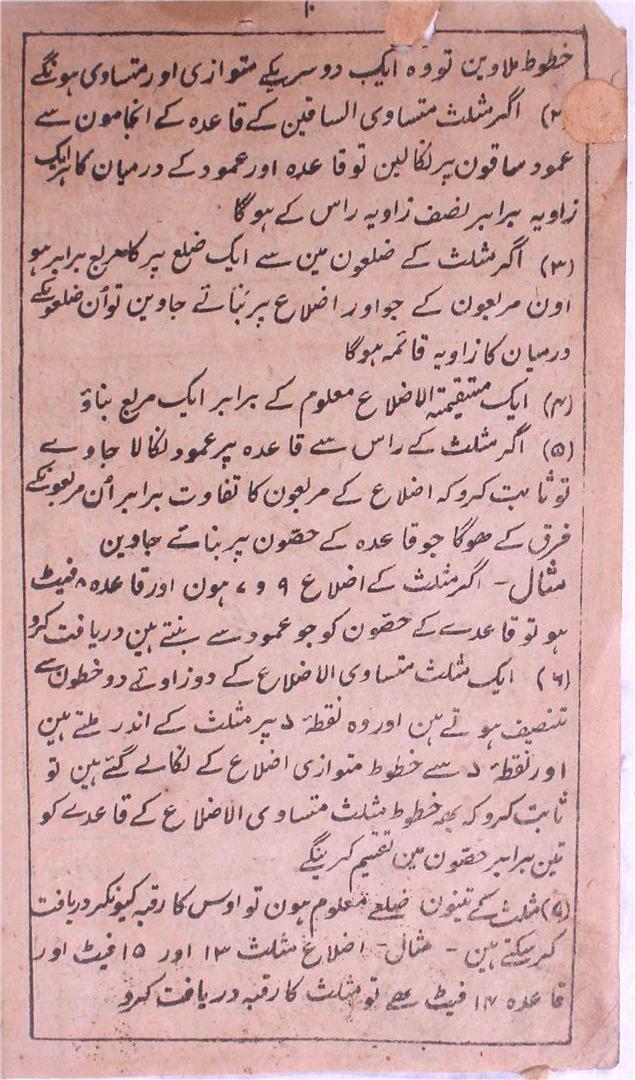 ۱۰
خطوط ملاوین تو وہ ایک دوسریکے متوازی اور متساوی ہونگے
(۲) اگر مثلث متساوی الساقین کے قاعدہ کے انجامون سے
عمود ساقون پر نکالین تو قاعدہ اور عمود کے درمیان کا ہر ایک
زاویہ برابر نصف زاویہ راس کے ہوگا
(۳) اگر مثلث کے ضلعون مین سے ایک ضلع پر کا مربع برابر ہو
اون مربعون کے جو اور اضلاع پر بنائے جاوین تو اُن ضلعونکے
درمیان کا زاویہ قائمہ ہوگا
(۴) ایک مستقیمۃ الاضلاع معلوم کے برابر ایک مربع بناؤ
(۵) اگر مثلث کے راس سے قاعدہ پر عمود نکالا جاوے
تو ثابت کرو کہ اضلاع کے مربعون کا تفاوت برابر اُن مربعونکے
فرق کے ھوگا جو قاعدہ کے حصّون پر بنائے جاوین
مثال - اگر مثلث کے اضلاع ۹ و ۷ ہون اور قاعدہ ۸ فیٹ
ہو تو قاعدے کے حصّون کو جو عمود سے بنتے ہین دریافت کرو
(۶) ایک مثلث متساوی الاضلاع کے دو زاوئے دو خطون سے
تنصیف ہوتے ہن اور وہ نقطۂ د پر مثلث کے اندر ملتے ہین
اور نقطۂ د سے خطوط متوازی اضلاع کے نکالے گئے ہین تو
ثابت کرو کہ یھہ خطوط مثلث متساوی الاضلاع کے قاعدے کو
تین برابر حصّون مین تقسیم کرینگے
(۷) مثلث کے تینون ضلعے معلوم ہون تو اوس کا رقبہ کیونکر دریافت
کرسکتے ہین - مثال - اضلاع مثلث ۱۳ اور ۱۵ فیٹ اور
قاعدہ ۱۴ فیٹ ھے تو مثلث کا رقبہ دریافت کرو